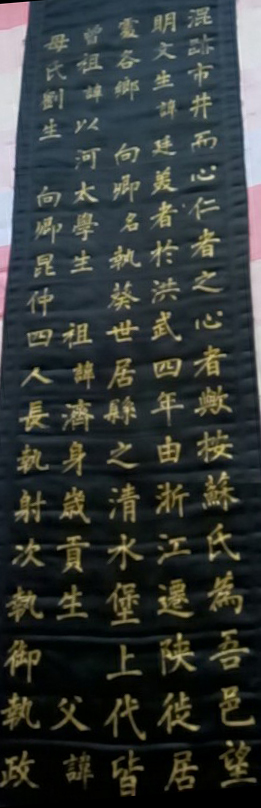 混跡市井而心仁者之心者歟按蘇氏為吾邑望
明文生諱廷羙者於洪武四年由浙江遷陝徙居
霊各鄉 向卿名執葵世居縣之清水堡上代皆
曾祖諱以河太學生 祖諱濟身歲貢生 父諱
母氏劉生 向卿昆仲四人長執射次執御執政